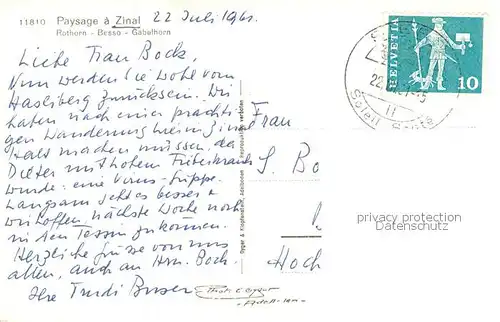 11810 Paysage à Zinal
Rothorn - Besso - Gabelhorn
22 Juli 1961
Liebe Frau Bock,
Nun werden Sie wohl vom
Hasliberg zurücksein. Wir
haben nach einer prächti-
gen Wanderung hier in Zinal
Halt machen müssen, da
Dieter mit hohem Fieber
wurde: eine Virus-Grippe.
Langsam geht es besser +
wir hoffen, nächste Woche noch
in den Tessin zu kommen.
Herzliche Grüsse von uns
allen, auch an Hrn. Bock.
Ihre Trudi Buser
Gyger & Klopfenstein, Adelboden
Reproduktion verboten
Frau
S. Bo
Hoch
HELVETIA
10
22.
11
Soleil
privacy protection
Datenschutz